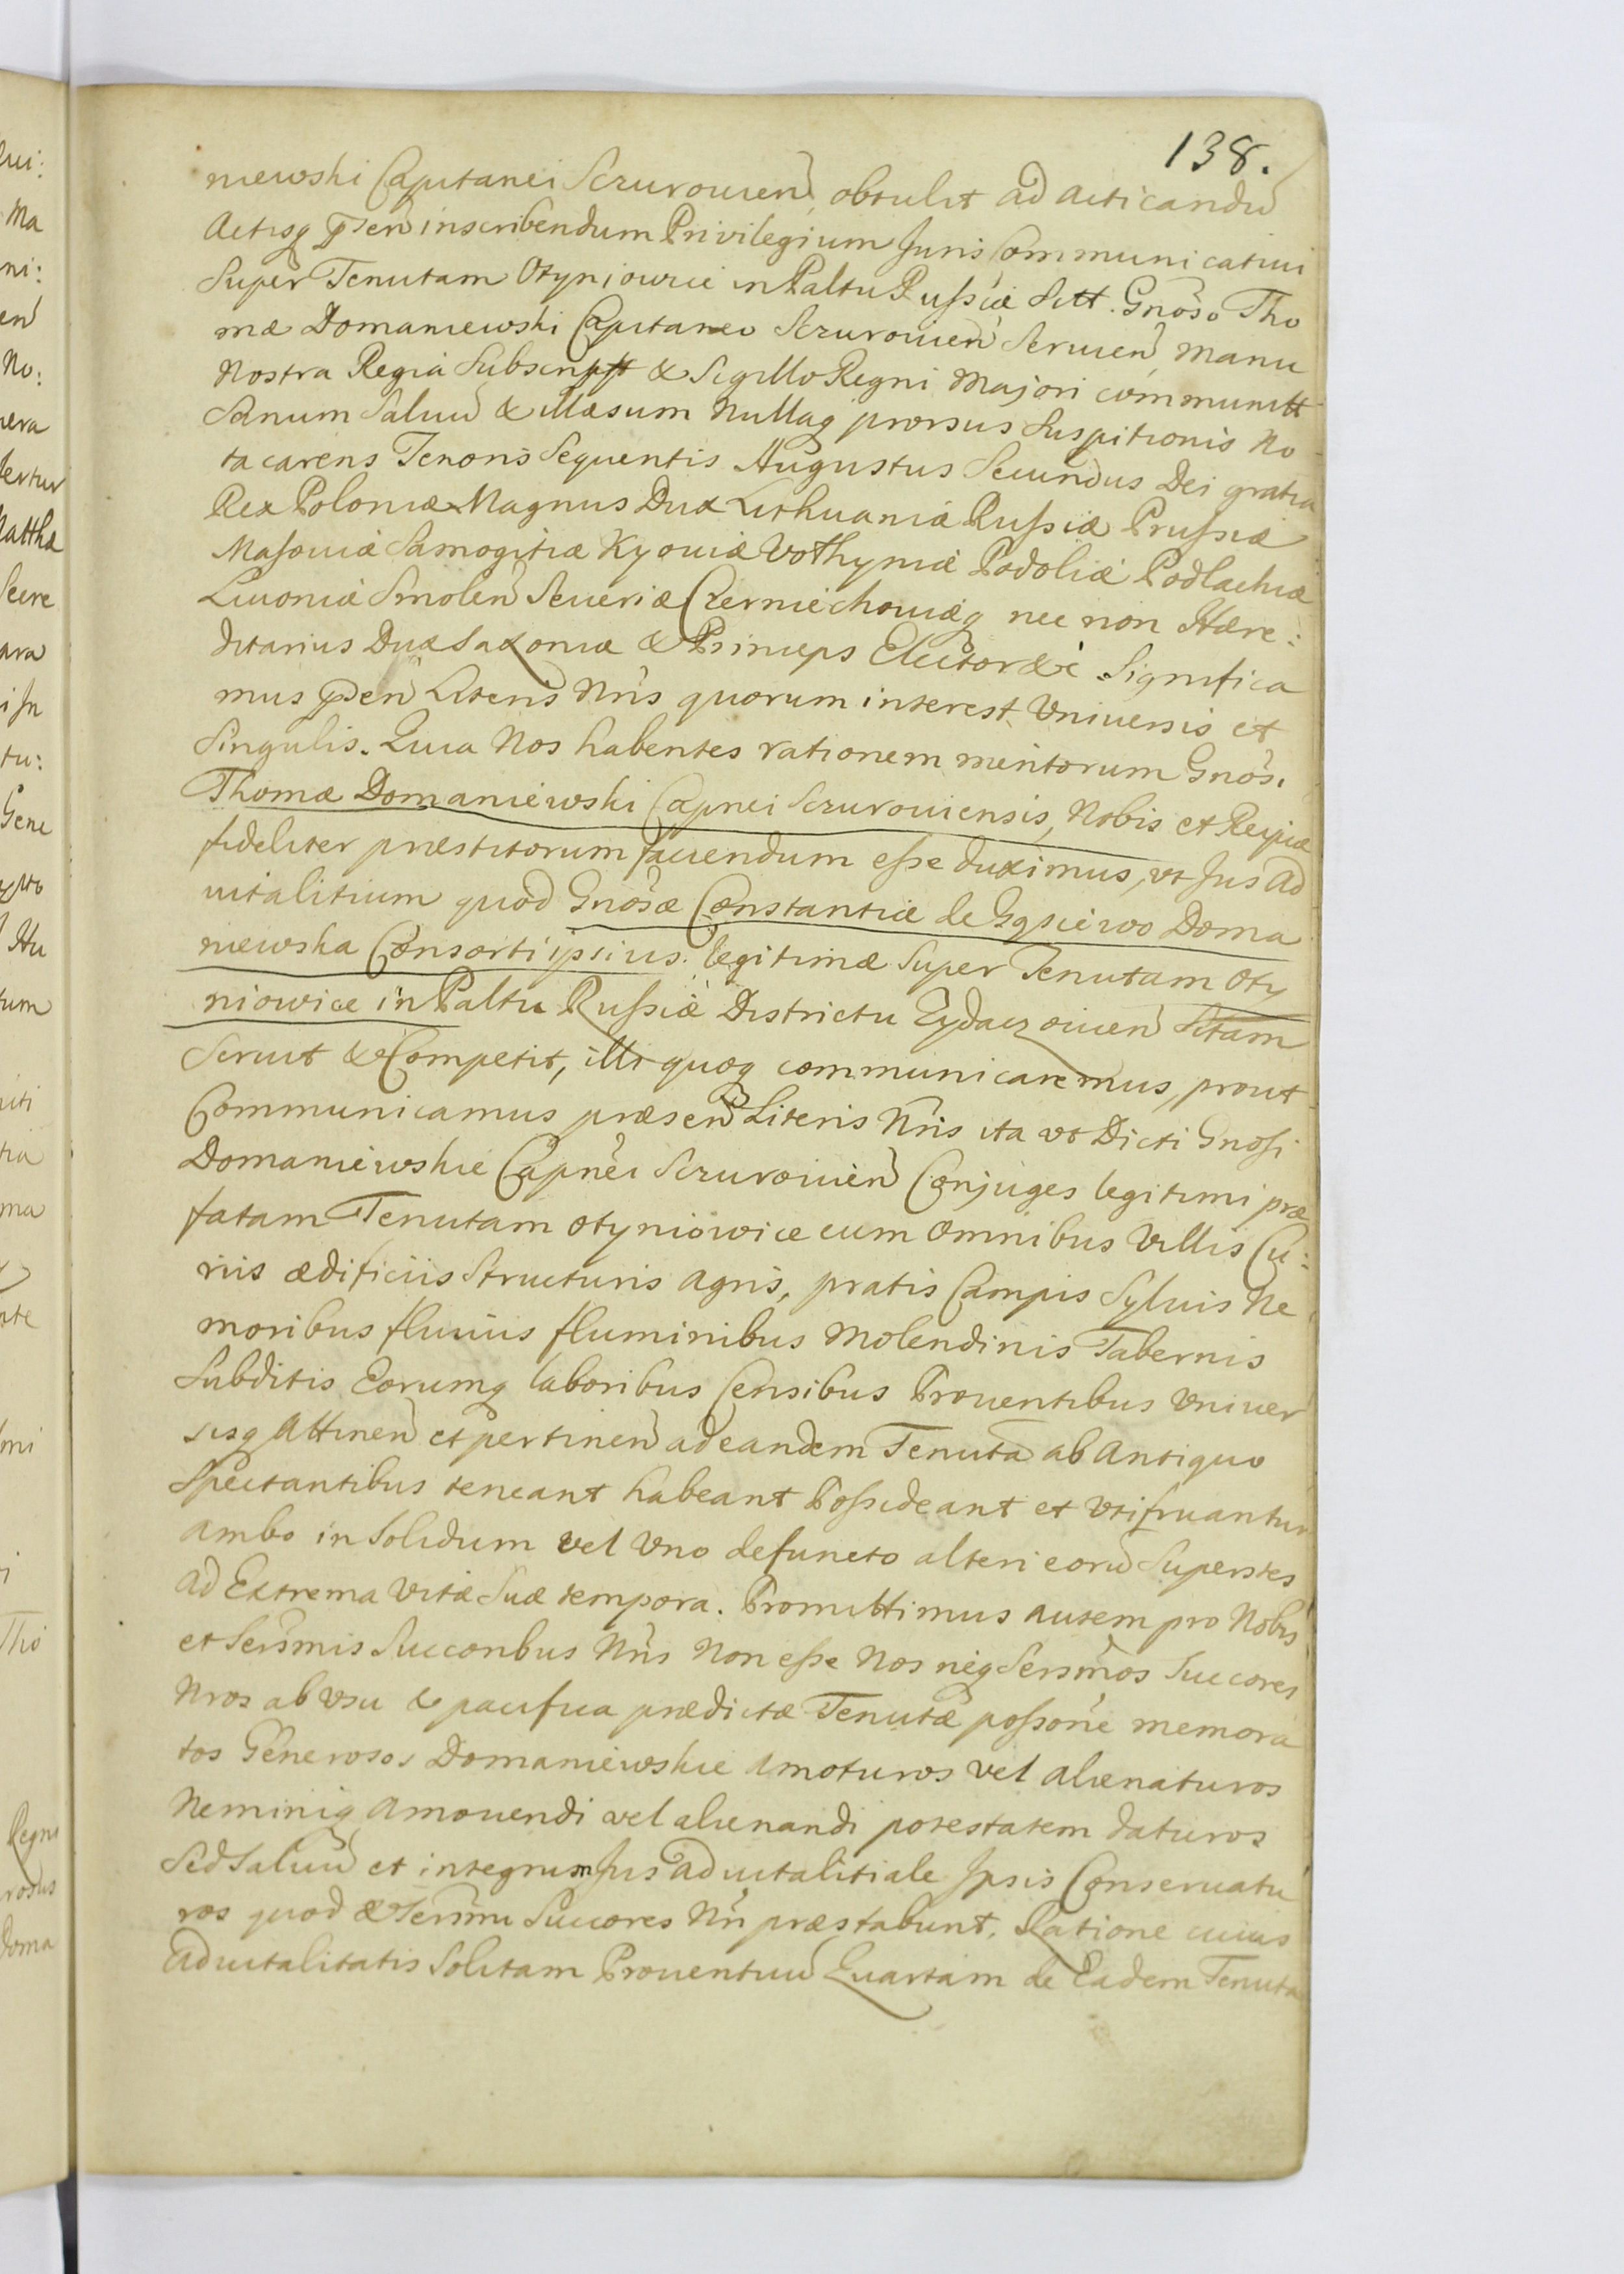 138.
niewski Capitanei Szurovien obtulit ad acticandu
Actisq pden inscribendum Privilegium Juris Communicativi
Super Tenutam Otyniowice in Paltu Russiæ Sitt. Gnoso Tho
mæ Domaniewski Capitaneo Szurovien Servien Manu
Nostra Regia Subscript & Sigillo Regni Majori communitt
Sanum Salvu & illæsum nullaq prorsus Suspitionis No
ta carens Tenoris Sequentis Augustus Secundus Dei gratia
Rex Poloniæ Magnus Dux Lithuaniæ Russiæ Prussiæ
Masoviæ Samogitiæ Kyoviæ Volhyniæ Podoliæ Podlachiæ
Livoniæ Smolen Severiæ Czerniechoviæq nec non Hære:
ditarius Dux Saxoniæ & Princeps Elector &c Significa
mus pden Literis Nris quorum interest Universis et
Singulis. Quia Nos habentes rationem meritorum Gnosi
Thomæ Domaniewski Capnei Szuroviensis, Nobis et Reipcæ
fideliter præstitorum faciendum esse duximus, ut Jus Ad
vitalitium quod Gnosæ Constantiæ de Doma
niewska Consorti ipsius legitimæ Super Tenutam Oty
niowice in Paltu Russiæ Districtu Zydaczovien Sitam
Servit & Competit, illi quoq communicaremus, prout
Communicamus præsen Literis Nris ita ut Dicti Gnosi
Domaniewskie Capnei Szurovien Conjuges legitimi præ
fatam Tenutam Otyniowice cum omnibus Villis Cu:
riis ædificiis Structuris agris, pratis Campis Sylvis Ne
moribus fluviis fluminibus Molendinis Tabernis
Subditis Eorumq laboribus Censibus Proventibus Univer
sisq Attinen et pertinen ad eandem Tenuta ab Antiquo
Spectantibus teneant habeant Possideant et Utifruantur
ambo in Solidum vel Uno defuncto alteri eoru Superstes
ad Extrema Vitæ Suæ tempora. Promittimus autem pro Nobis
et Sersmis Succoribus Nris Non esse Nos neq Sersmos Succores
Nros ab Usu & pacifica prædictæ Tenutæ possone memora
tos Generosos Domaniewskie Amoturos vel alienaturos
Neminiq Amovendi vel alienandi potestatem daturos
Sed Salvu et integrum Jus advitalitiale Ipsis Conservatu
ros quod & Sersmi Succores Nri præstabunt. Ratione cuius
Advitalitatis Solitam Proventuu Quartam de Eadem Tenuta